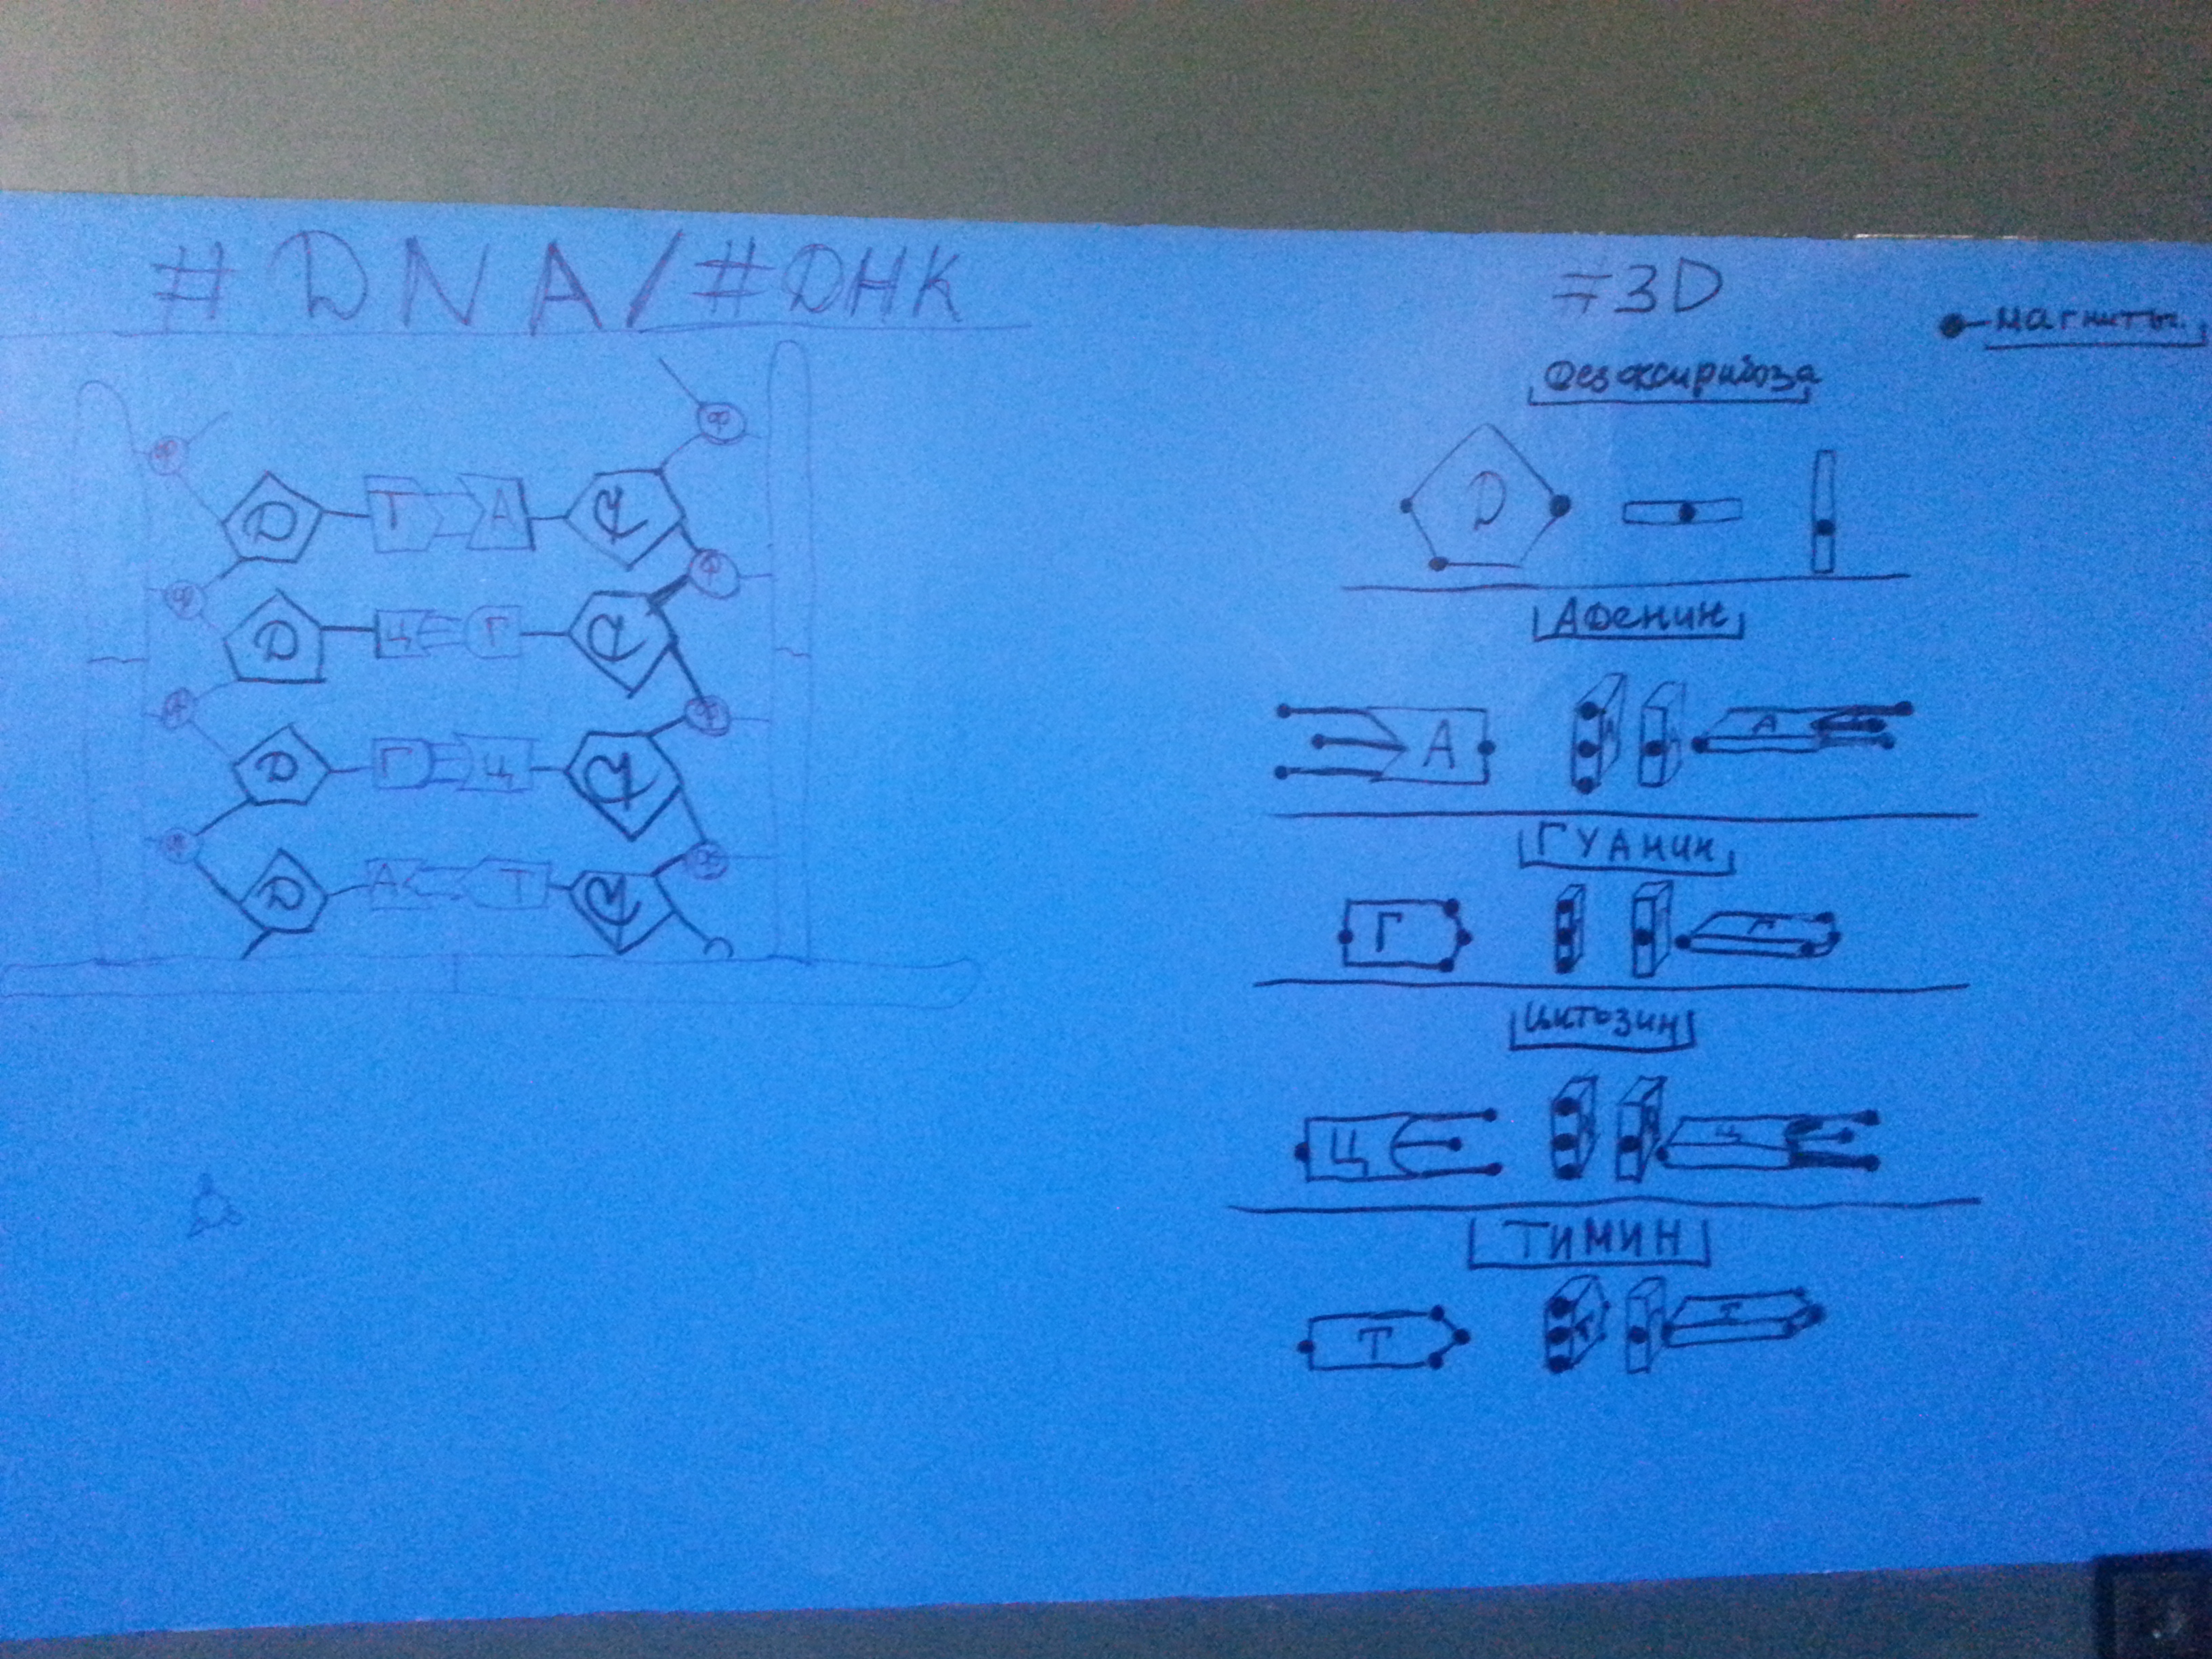 #DNA/#ДНК
Ф Ф
Д Т А Д
Ф Ф
Д Ц Г Д
Ф Ф
Д Г Ц Д
Ф Ф
Д А Т Д
#3D
магниты.
Дезоксирибоза
Д
Аденин
А А
Гуанин
Г Г
Цитозин
Ц Ц
Тимин
Т Т Т